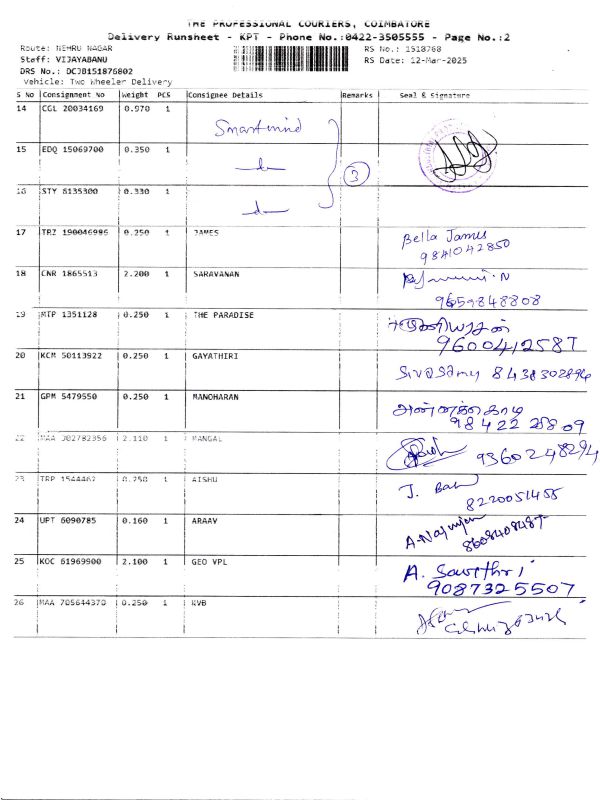 THE PROFESSIONAL COURIERS, COIMBATORE
Delivery Runsheet - KPT - Phone No.:0422-3505555 - Page No.:2
Route: NEHRU NAGAR RS No.: 1518768
Staff: VIJAYABANU RS Date: 12-Mar-2025
DRS No.: DCJB151876802
Vehicle: Two Wheeler Delivery
S No Consignment No Weight PCS Consignee Details Remarks Seal & Signature
14 CGL 20034169 0.970 1 Smartmind
15 EDQ 15069700 0.350 1 3
16 STY 6135300 0.330 1
17 TRZ 190046986 0.250 1 JAMES Bella James
9841042850
18 CNR 1865513 2.200 1 SARAVANAN
9659848808
19 MTP 1351128 0.250 1 THE PARADISE
9600412587
20 KCM 50113922 0.250 1 GAYATHIRI Sivasamy 8438302894
21 GPM 5479550 0.250 1 MANOHARAN அன்னக்கொடி
98422 25809
22 MAA 302782356 2.110 1 MANGAL 9360248294
23 TRP 1544462 0.250 1 AISHU J. Bala
8220051455
24 UPT 6090785 0.160 1 ARAAV
8608408487
25 KOC 61969900 2.100 1 GEO VPL A. Savithri
9087325507
26 MAA 705644370 0.250 1 KVB